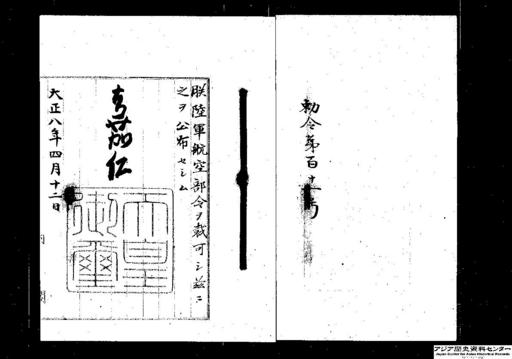 勅令第百十一号
朕陸軍航空部令ヲ裁可シ茲ニ
之ヲ公布セシム
嘉仁
大正八年四月十二日
天皇
御璽
アジア歴史資料センター
Japan Center for Asian Historical Records